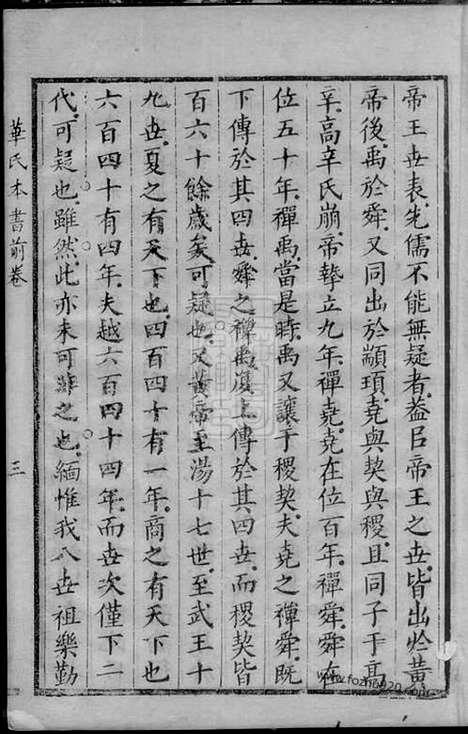 帝王世表先儒不能無疑者蓋以帝王之世皆出於黃
帝後禹於舜又同出於顓頊堯與契與稷且同子于高
辛高辛氏崩帝摯立九年禪堯堯在位百年禪舜舜在
位五十年禪禹當是時禹又讓于稷契夫堯之禪舜既
下傳於其四世舜之禪禹須上傳於其四世而稷契皆
百六十餘歲矣可疑也又黃帝至湯十七世至武王十
九世夏之有天下也四百四十有一年商之有天下也
六百四十有四年夫越六百四十四年而世次僅下二
代可疑也雖然此亦未可非之也緬惟我八世祖樂勤
華氏本書前卷
三